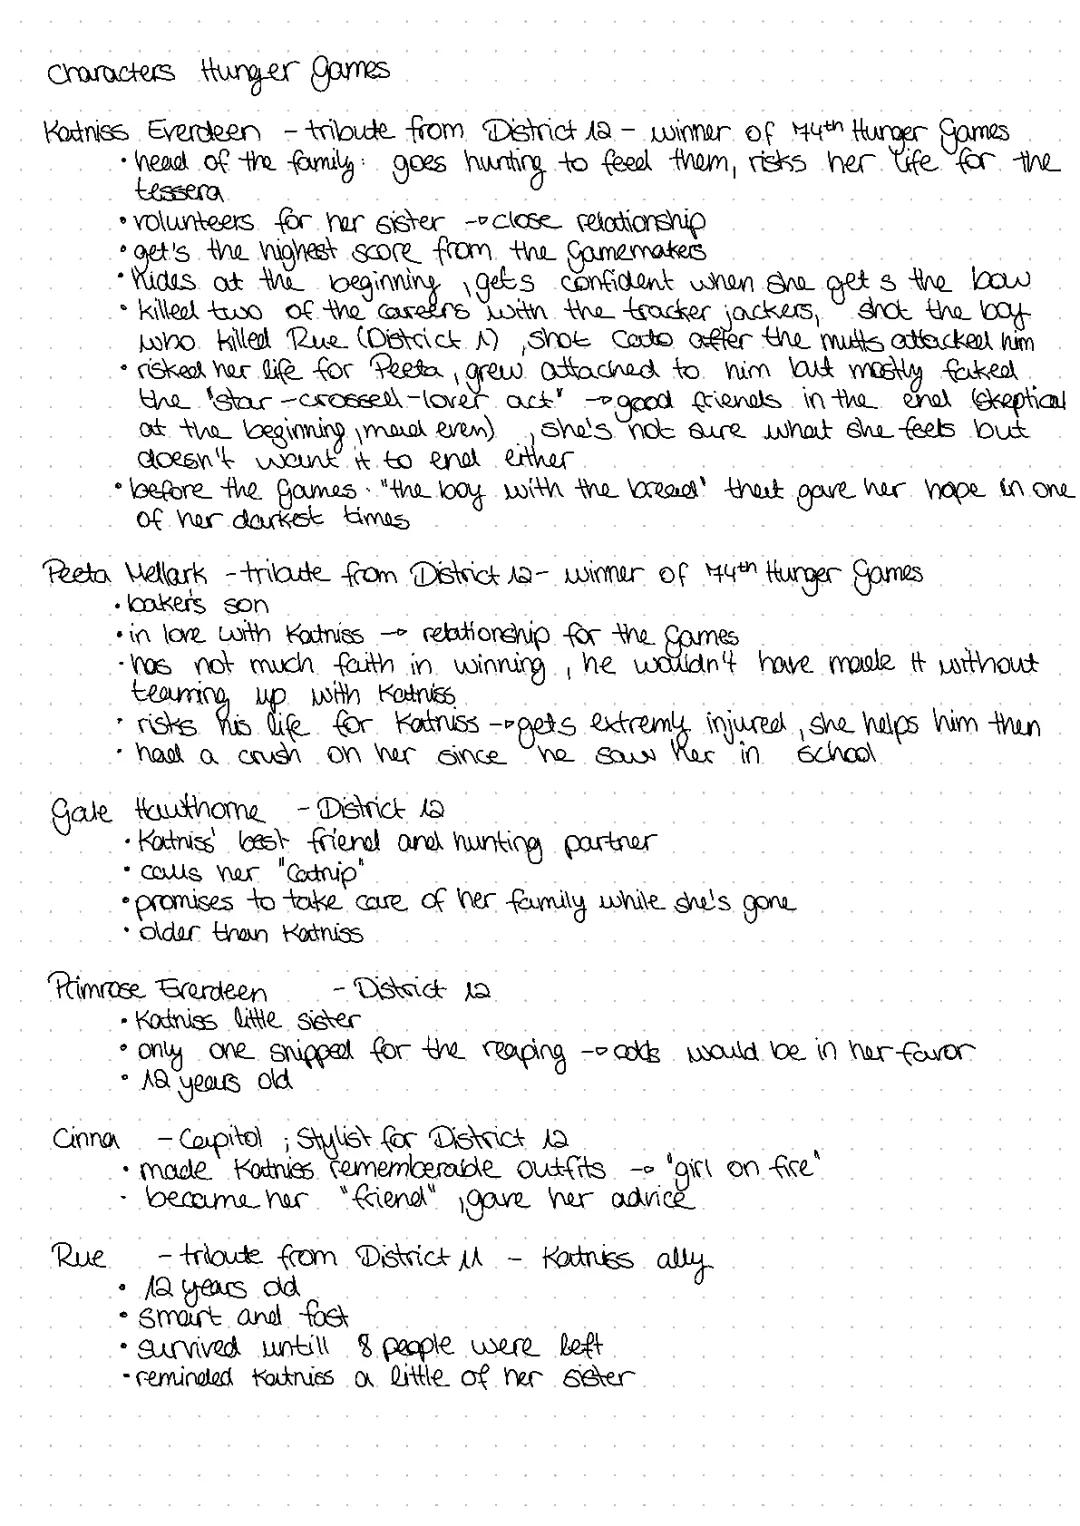 Characters Hunger Games
Katniss Everdeen - tribute from District 12 - winner of 74th Hunger Games
• head of the family: goes hunting to feed them, risks her life for the
tessera
• volunteers for her sister → close relationship
• get's the highest score from the Gamemakers
• hides at the beginning, gets confident when she gets the bow
• killed two of the careers with the tracker jackers, shot the boy
who killed Rue (District 1), shot Cato after the mutts attacked him
• risked her life for Peeta, grew attached to him but mostly faked
the 'star-crossed-lover act" → good friends in the end (skeptical
at the beginning, mad even), she's not sure what she feels but
doesn't want it to end either
• before the Games: "the boy with the bread" that gave her hope in one
of her darkest times
Peeta Mellark - tribute from District 12 - winner of 74th Hunger Games
• baker's son
• in love with Katniss → relationship for the Games
• has not much faith in winning, he wouldn't have made it without
teaming up with Katniss
• risks his life for Katniss → gets extremly injured, she helps him then
• had a crush on her since he saw her in school
Gale Hawthorne - District 12
• Katniss' best friend and hunting partner
• calls her "Catnip"
• promises to take care of her family while she's gone
• older than Katniss
Primrose Everdeen - District 12
• Katniss little sister
• only one snipped for the reaping → odds would be in her favor
• 12 years old
Cinna - Capitol ; Stylist for District 12
• made Katniss rememberable outfits → "girl on fire"
• became her "friend", gave her advice
Rue - tribute from District 11 - Katniss ally
• 12 years old
• smart and fast
• survived untill 8 people were left
• reminded Katniss a little of her sister